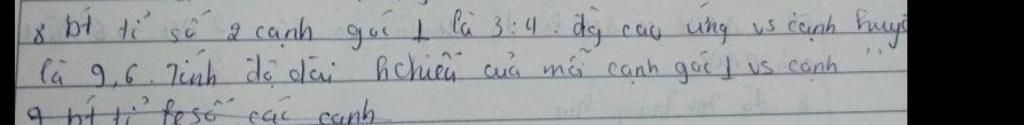 8 bt tỉ số 2 cạnh góc ⊥ là 3:4. độ cao ứng vs cạnh huyề
là 9,6. Tính độ dài hchiếu của mỗi cạnh góc ⊥ vs cạnh "
9 bt tỉ số các cạnh